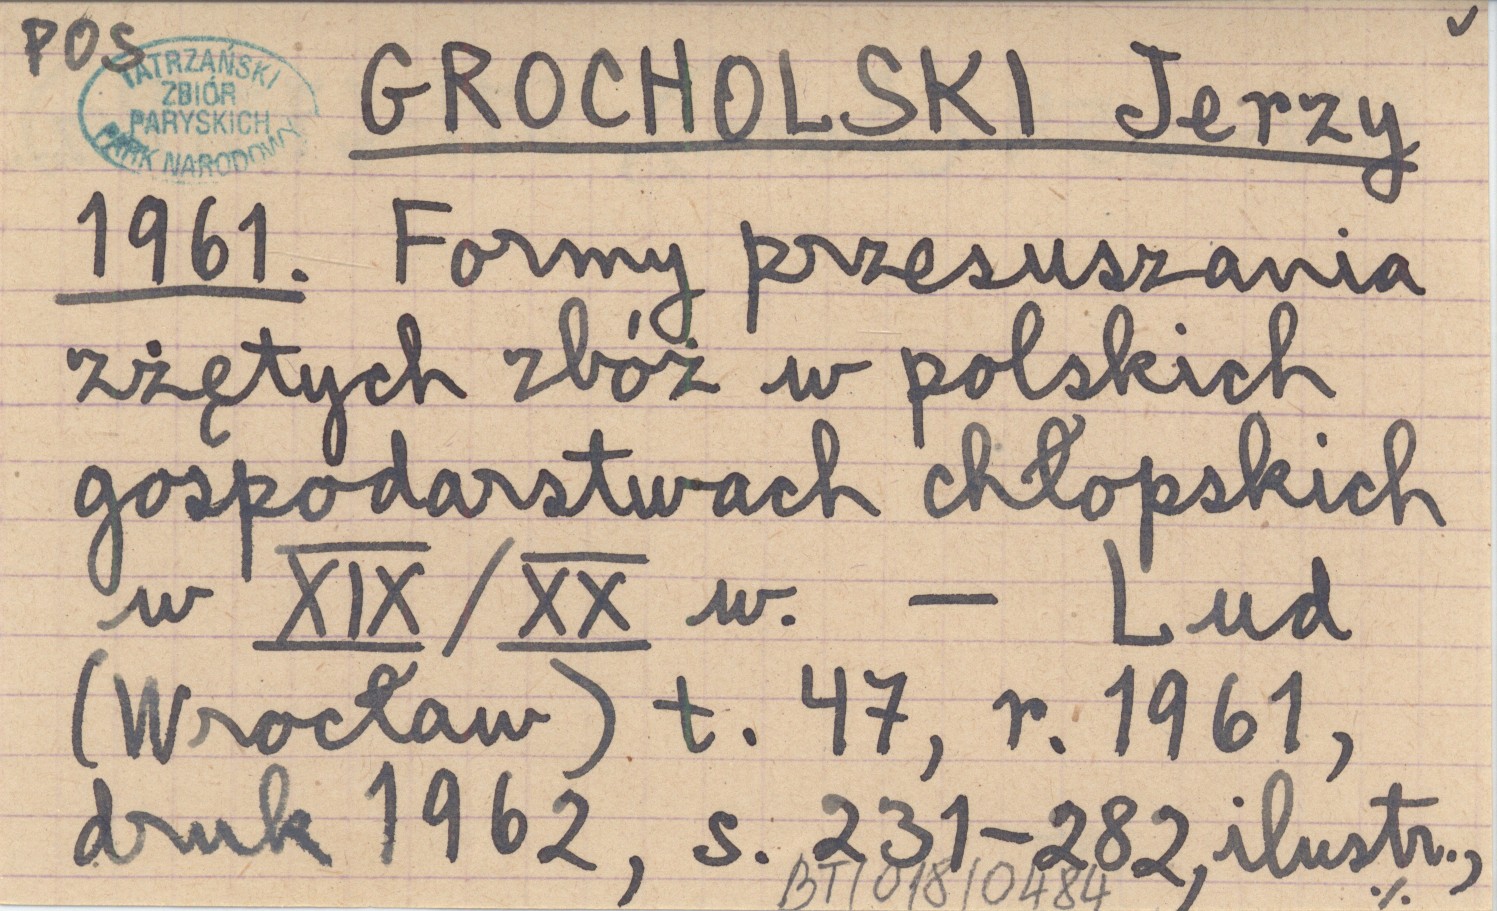 POS
TATRZAŃSKI
ZBIÓR
PARYSKICH
PARK NARODOWY
GROCHOLSKI Jerzy
1961. Formy przesuszania
zżętych zbóż w polskich
gospodarstwach chłopskich
w XIX/XX w. — Lud
(Wrocław) t. 47, r. 1961,
druk 1962, s. 231-282, ilustr.,
BT/018/0484 ·/.